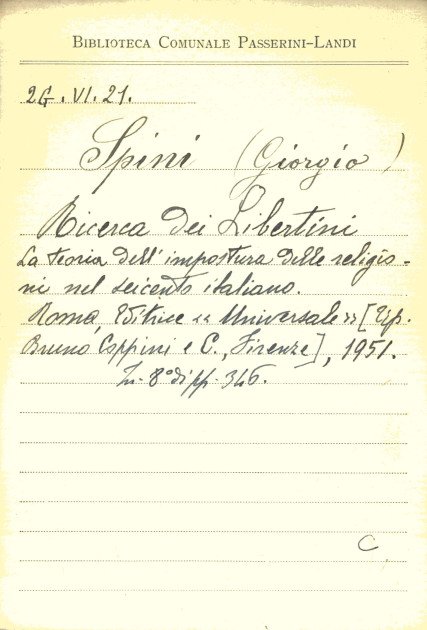 BIBLIOTECA COMUNALE PASSERINI-LANDI
2G.VI.21.
Spini (Giorgio)
Ricerca dei Libertini
La teoria dell'impostura delle religio-
ni nel seicento italiano.
Roma, Editrice «Universale» [Tip.
Bruno Coppini e C., Firenze], 1951.
In-8° di pp. 346.
C